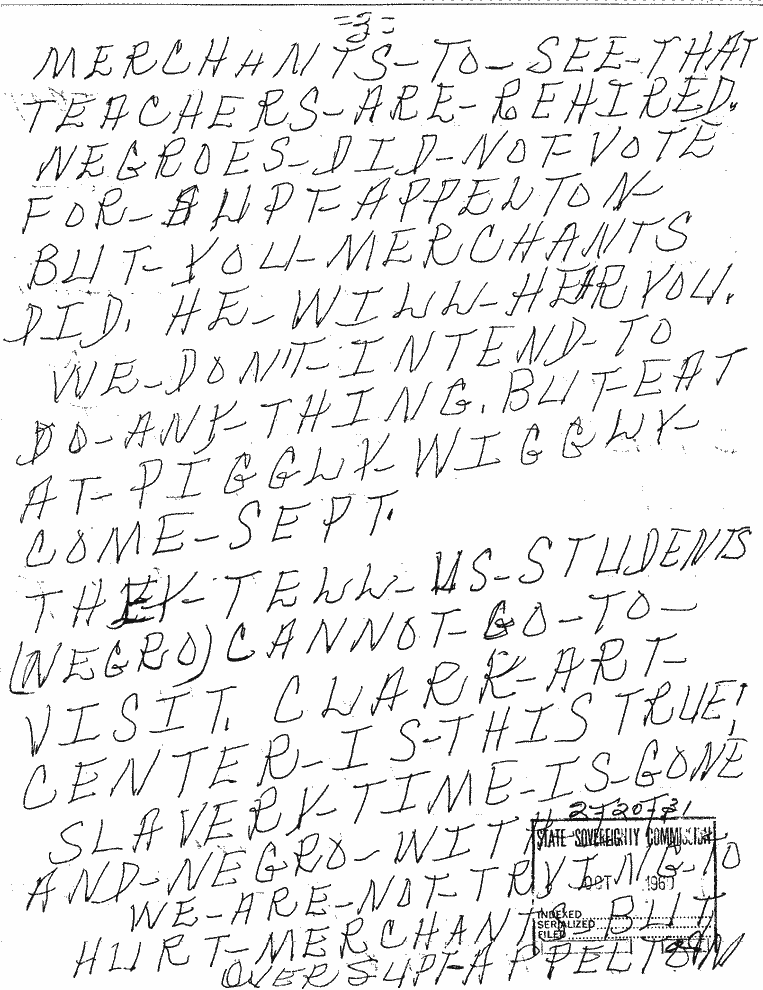 -3-
MERCHANTS-TO-SEE-THAT
TEACHERS-ARE-REHIRED.
NEGROES-DID-NOT-VOTE
FOR-SUPT-APPELTON-
BUT-YOU-MERCHANTS
DID. HE-WILL-HEAR YOU.
WE-DON'T-INTEND-TO
DO-ANY-THING. BUT-EAT
AT-PIGGLY-WIGGLY-
COME-SEPT.
THEY-TELL-US-STUDENTS
(NEGRO) CANNOT-GO-TO-
VISIT. CLARK-ART-
CENTER-IS-THIS TRUE!
SLAVERY-TIME-IS-GONE
AND-NEGRO-WITH
WE-ARE-NOT-TRYING-TO
HURT-MERCHANTS-BUT
OVER SUPT-APPELTON
STATE SOVEREIGNTY COMMISSION
OCT
INDEXED
SERIALIZED
FILED